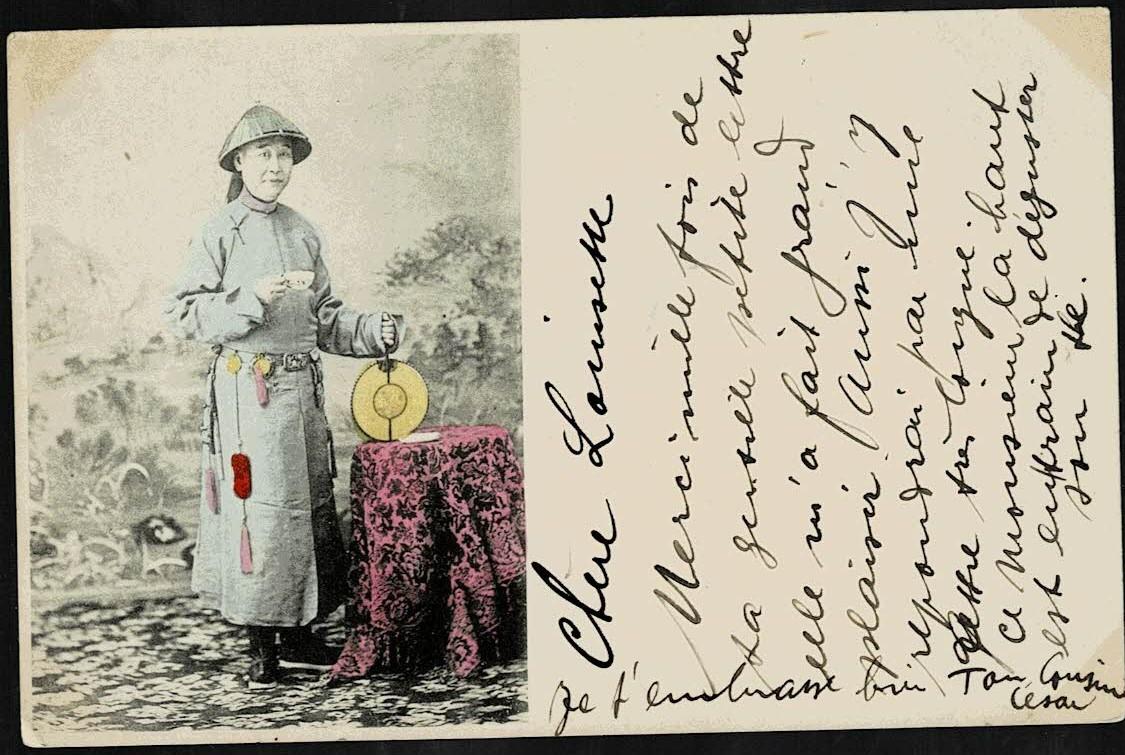 Chere Louisette
Merci mille fois de
ta gentille petite lettre
elle m'a fait grand
plaisir. Aussi j'y
repondrai par une
lettre très longue.
Ce monsieur la haut
est entrain de déguster
son thé.
Je t'embrasse bien Ton Cousin
Cesar